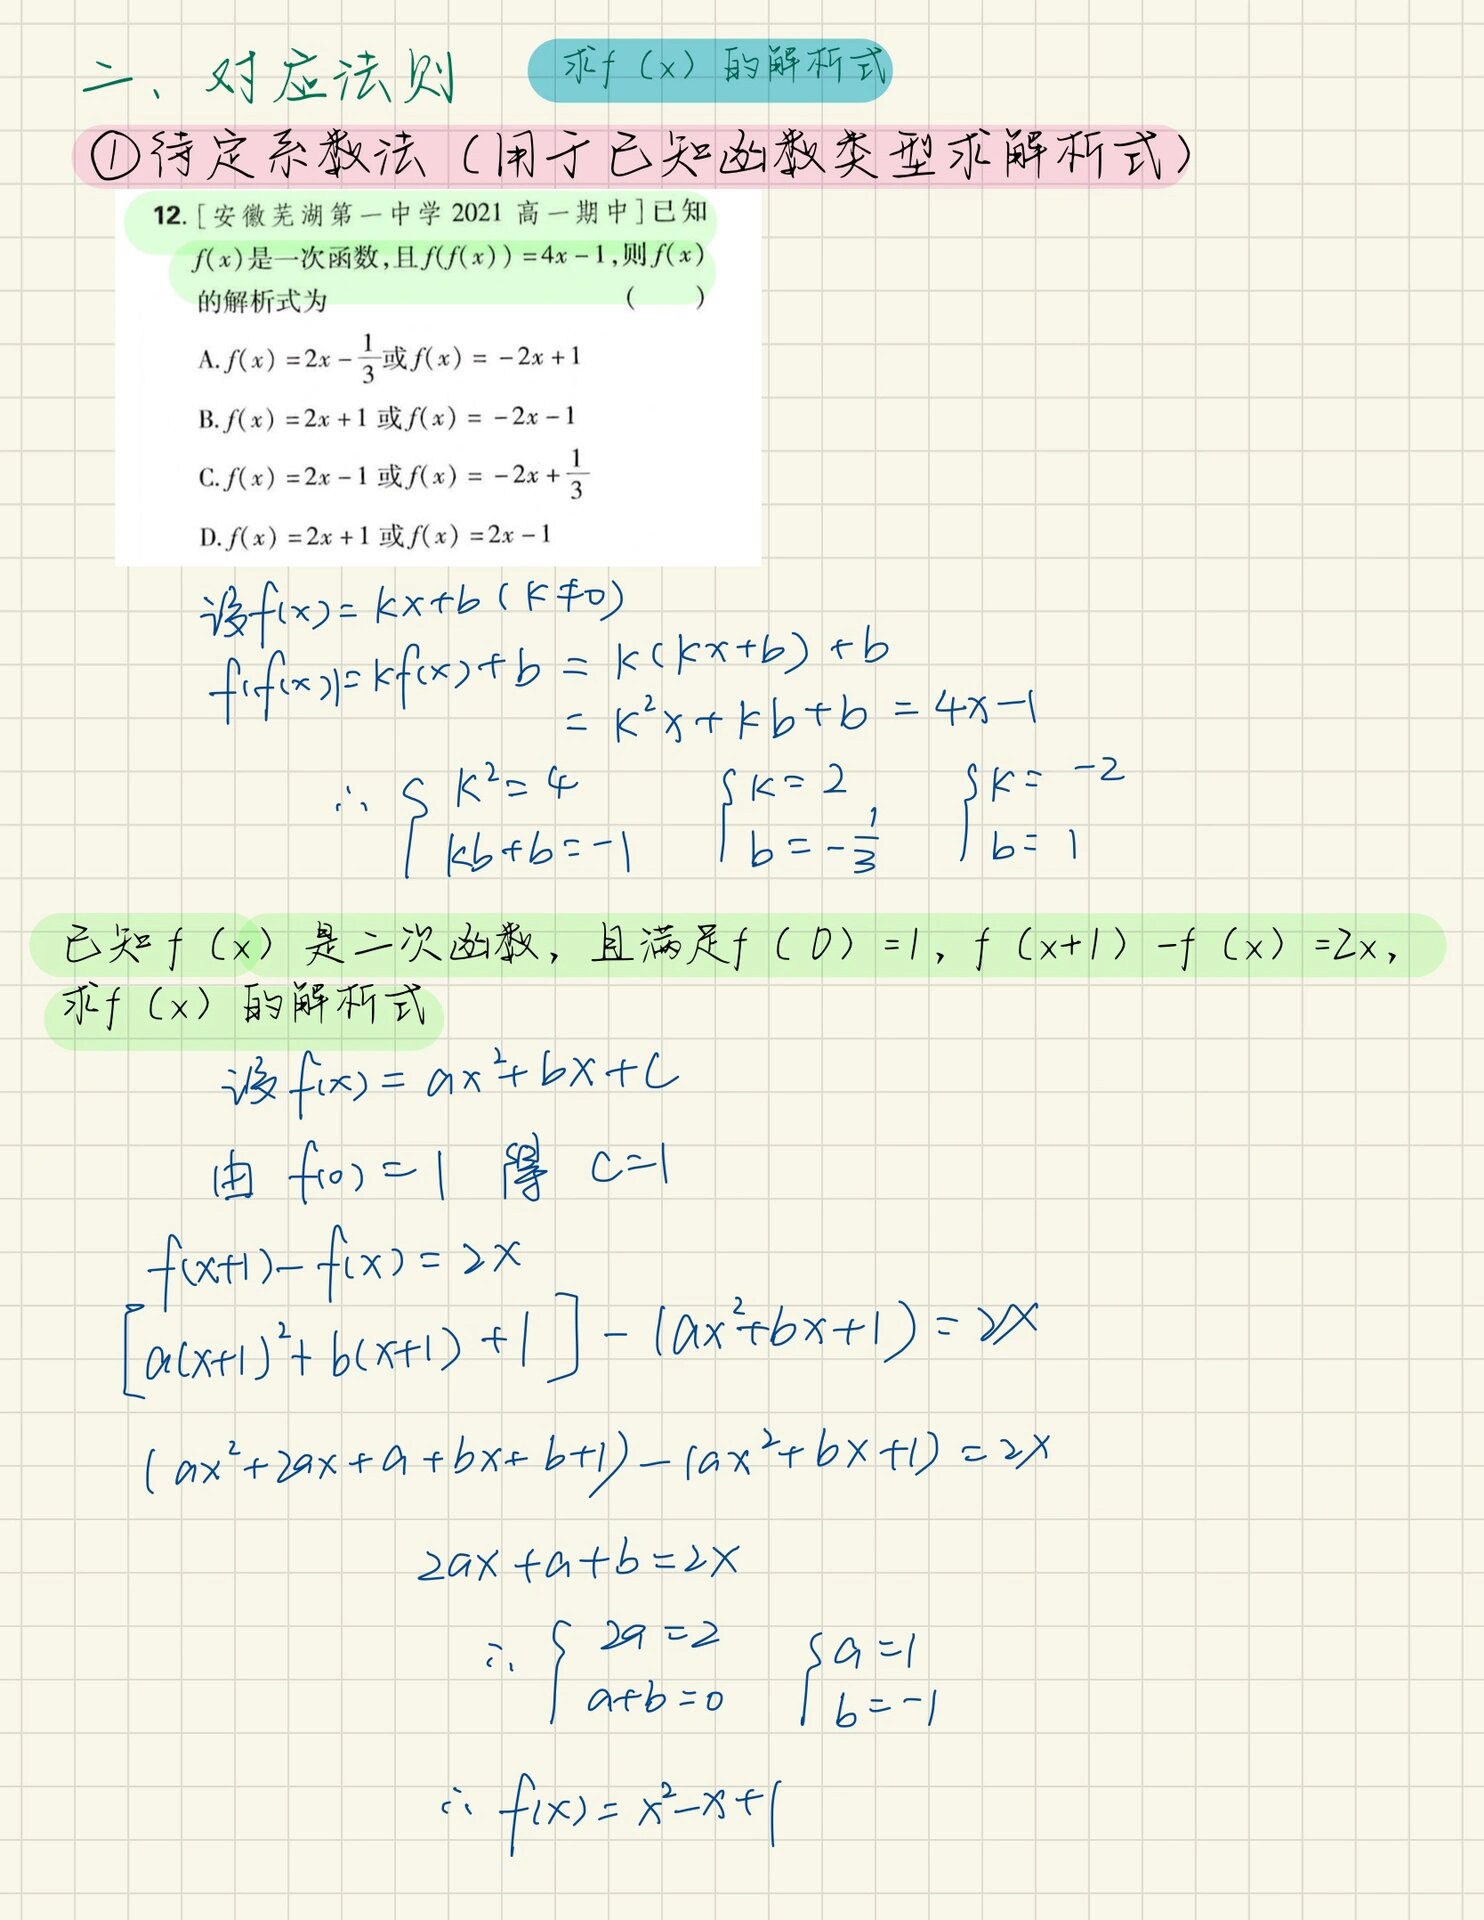 二、对应法则 求f（x）的解析式
①待定系数法（用于已知函数类型求解析式）
12.[安徽芜湖第一中学2021高一期中]已知
f(x)是一次函数,且f(f(x))=4x-1,则f(x)
的解析式为 (   )
A.f(x)=2x-1/3或f(x)=-2x+1
B.f(x)=2x+1或f(x)=-2x-1
C.f(x)=2x-1或f(x)=-2x+1/3
D.f(x)=2x+1或f(x)=2x-1
设f(x)=kx+b(k≠0)
f(f(x))=kf(x)+b=k(kx+b)+b
=k²x+kb+b=4x-1
∴ { k²=4 { k=2 { k=-2
kb+b=-1 b=-1/3 b=1
已知f（x）是二次函数，且满足f（0）=1，f（x+1）-f（x）=2x，
求f（x）的解析式
设f(x)=ax²+bx+c
由 f(0)=1 得 c=1
f(x+1)-f(x)=2x
[a(x+1)²+b(x+1)+1]-(ax²+bx+1)=2x
(ax²+2ax+a+bx+b+1)-(ax²+bx+1)=2x
2ax+a+b=2x
∴ { 2a=2 { a=1
a+b=0 b=-1
∴ f(x)=x²-x+1